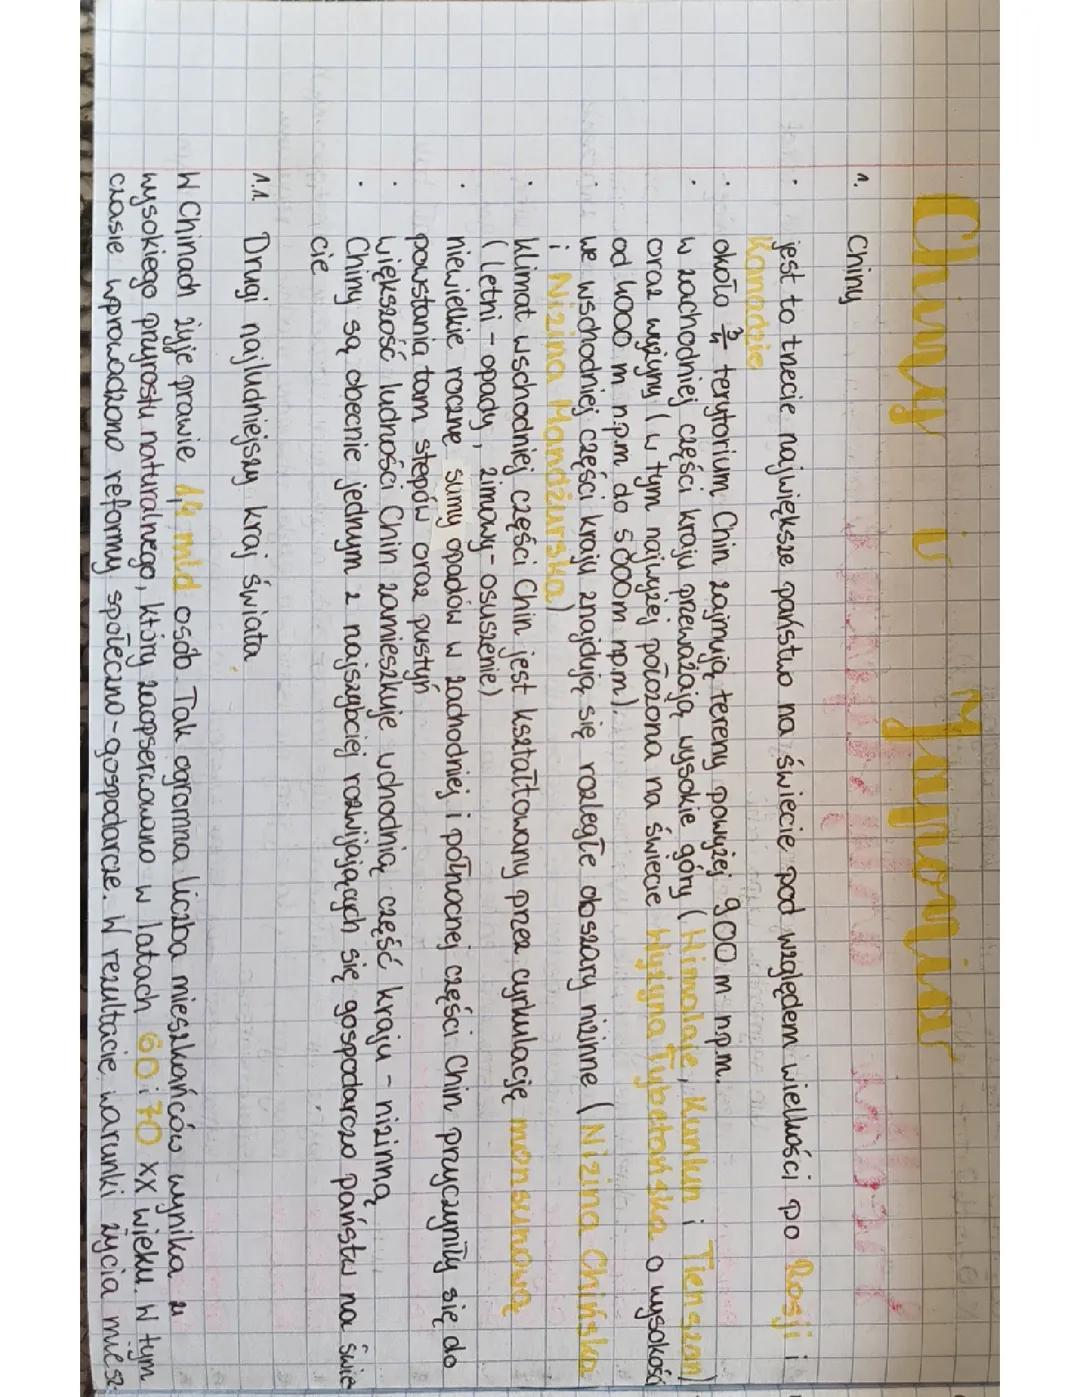 Chiny i Japonia
1. Chiny
· jest to trzecie największe państwo na świecie pod względem wielkości po Rosji i
Kanadzie
· około 3/4 terytorium Chin zajmują tereny powyżej 900 m n.p.m.
· w zachodniej części kraju przeważają wysokie góry (Himalaje, Kunlun i Tienszan)
oraz wyżyny (w tym najwyżej położona na świecie Wyżyna Tybetańska o wysokości
od 4000 m n.p.m. do 5800m n.p.m).
· we wschodniej części kraju znajdują się rozległe obszary nizinne (Nizina Chińska
i Nizina Mandżurska)
· klimat wschodniej części Chin jest kształtowany przez cyrkulację monsunową
(letni - opady, zimowy - osuszenie)
· niewielkie roczne sumy opadów w zachodniej i północnej części Chin przyczyniły się do
powstania tam stepów oraz pustyń
· większość ludności Chin zamieszkuje wchodnią część kraju - nizinną
· Chiny są obecnie jednym z najszybciej rozwijających się gospodarczo państw na świe
cie
1.1. Drugi najludniejszy kraj świata
W Chinach żyje prawie 1,4 mld osób. Tak ogromna liczba mieszkańców wynika z
wysokiego przyrostu naturalnego, który zaopserwowano w latach 60 i 70 XX wieku. W tym
czasie wprowadzono reformy społeczno-gospodarcze. W rezultacie warunki życia miesz-